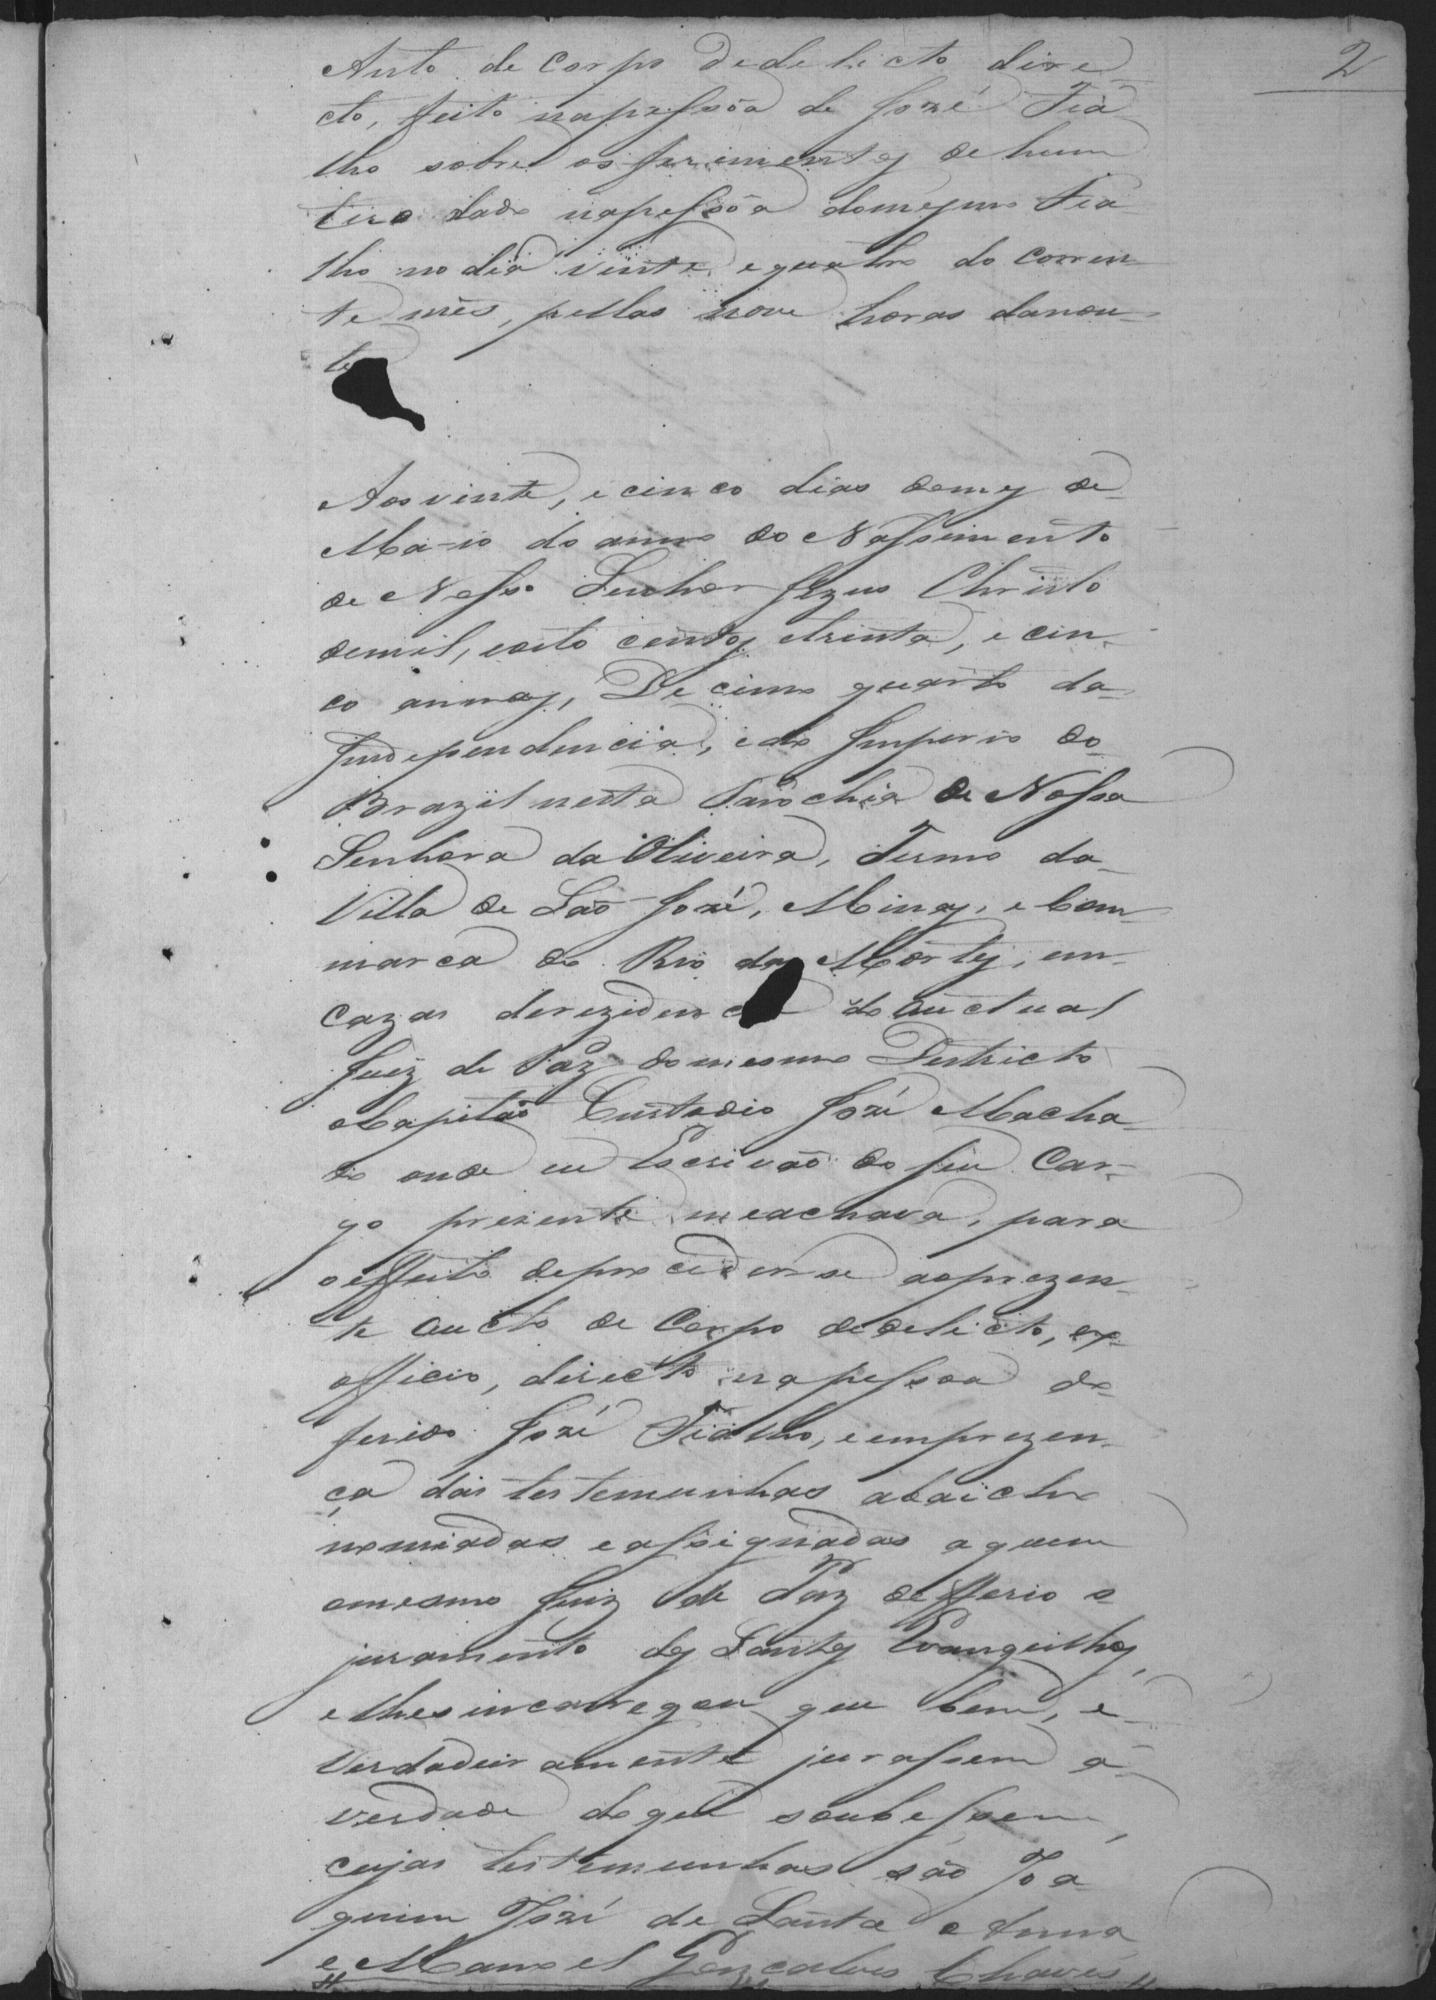 2
Auto de Corpo de delicto dire-
cto, feito napessôa de Jozé Fiá
lho sobre os ferimentos de hum
tiro dado napessôa domesmo Fia
lho no dia vinte e quatro do corren
te mês, pellas nove horas danou-
te
Aos vinte, e cinco dias domes de
Maio do anno do Nassimento
de Nosso Senhor Jezus Christo
demil, eoito centos etrinta, e cin-
co annos, Decimo quarto da
Independencia, edo Imperio do
Brazil nesta Parochia de Nossa
Senhora da Oliveira, Termo da
Villa de São Jozé, Minas, e Com
marca do Rio das Mortes, em
cazas derezidencia do auctual
Juiz de Paz domesmo Destricto
Capitão Custodio Jozé Macha
do onde eu Escrivão do seu Car-
go prezente meachava, para
oeffeito deprocederse aoprezen-
te aucto de Corpo dedelicto, ex-
officio, directo napessoa do
ferido Jozé Fialho, eemprezen-
ça das testemunhas abaicho
nomiadas eassignadas aquem
omesmo Juiz de Paz defferio o
juramento dos Santos Evangeilhos,
elhesincarregou que bem, e
Verdadeiramente jurassem a
verdade doque soubessem,
cujas testemunhas são Joa
quim Jozé de Santa Anna
e Manoel Gonçalves Chaves